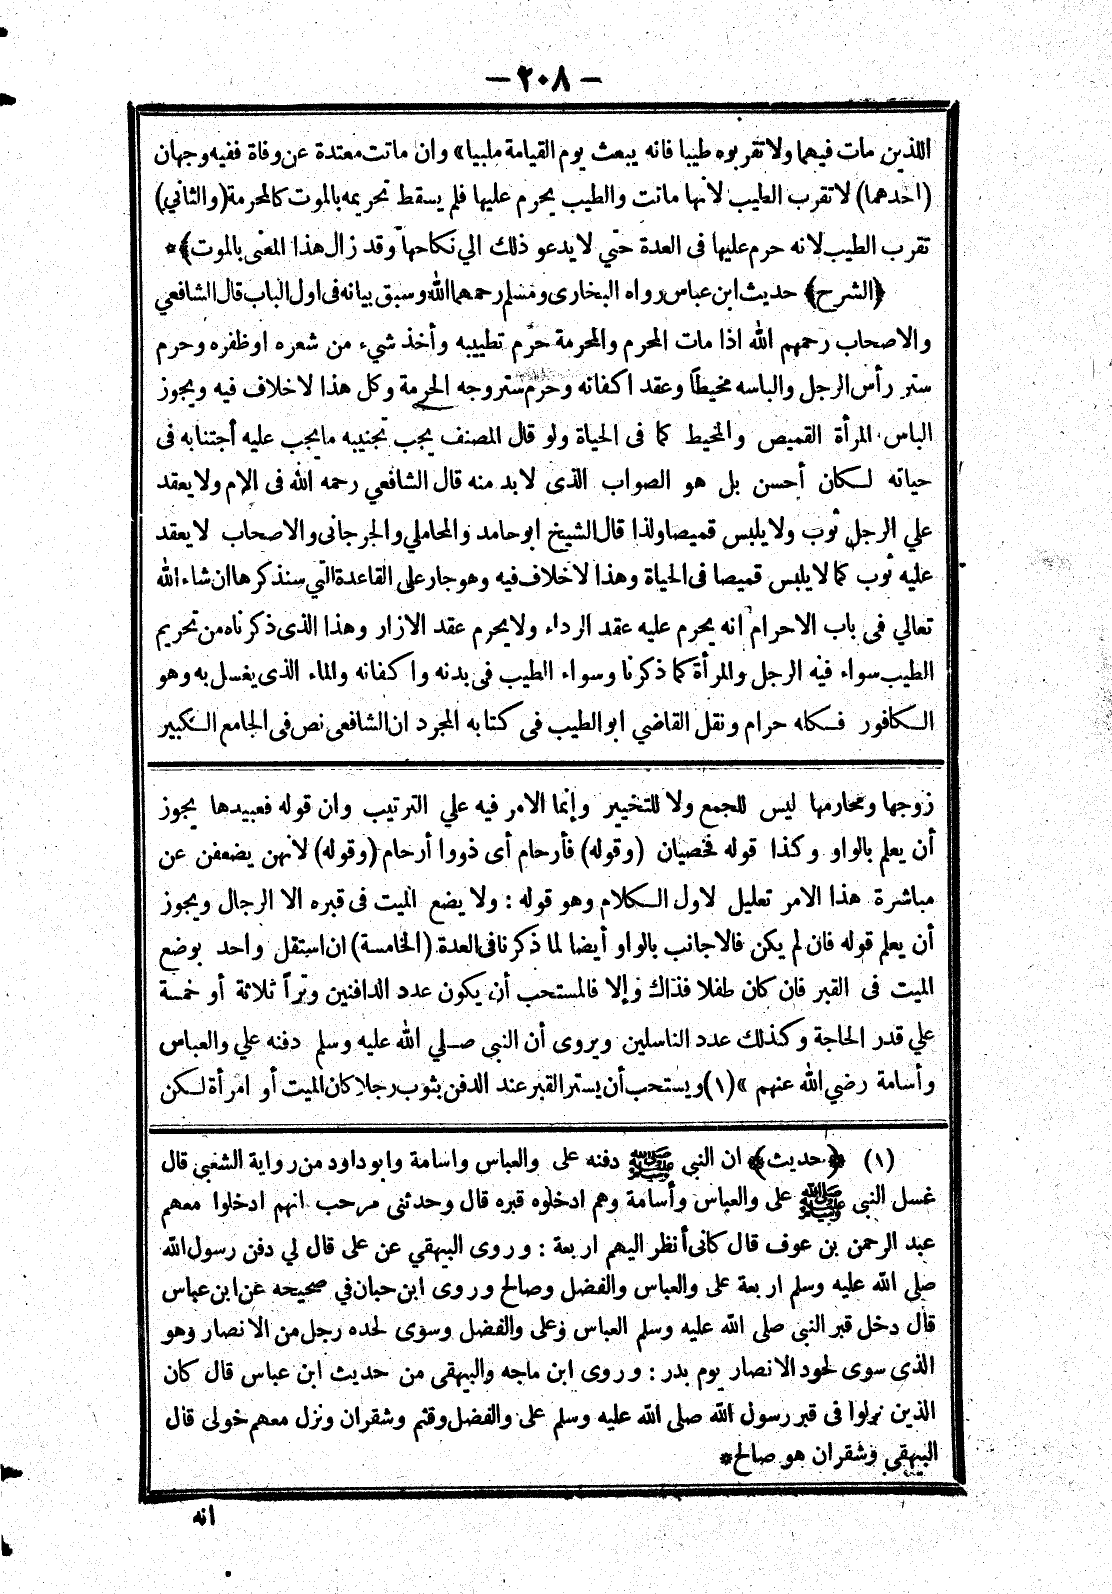 — ٢٠٨ —
اللذين مات فيهما ولا تقربوه طيبا فانه يبعث يوم القيامة ملبيا» وان ماتت معتدة عن وفاة ففيه وجهان
(احدهما) لا تقرب الطيب لانها ماتت والطيب يحرم عليها فلم يسقط تحريمه بالموت كالمحرمة (والثاني)
تقرب الطيب لانه حرم عليها فى العدة حتي لا يدعو ذلك الي نكاحها وقد زال هذا المعنى بالموت﴾ *
﴿الشرح﴾ حديث ابن عباس رواه البخارى ومسلم رحمهما الله وسبق بيانه فى اول الباب قال الشافعي
والاصحاب رحمهم الله اذا مات المحرم والمحرمة حرم تطييبه وأخذ شيء من شعره او ظفره وحرم
ستر رأس الرجل والباسه مخيطا وعقد اكفانه وحرم ستر وجه الحرمة وكل هذا لا خلاف فيه ويجوز
الباس المرأة القميص والمخيط كما فى الحياة ولو قال المصنف يجب تجنيبه ما يجب عليه أجتنابه فى
حياته لكان أحسن بل هو الصواب الذى لا بد منه قال الشافعي رحمه الله فى الام ولا يعقد
علي الرجل ثوب ولا يلبس قميصا ولذا قال الشيخ ابو حامد والمحاملي والجرجانى والاصحاب لا يعقد
عليه ثوب كما لا يلبس قميصا فى الحياة وهذا لا خلاف فيه وهو جار على القاعدة التي سنذكرها ان شاء الله
تعالي فى باب الاحرام انه يحرم عليه عقد الرداء ولا يحرم عقد الازار وهذا الذى ذكرناه من تحريم
الطيب سواء فيه الرجل والمرأة كما ذكرنا وسواء الطيب فى بدنه واكفانه والماء الذى يغسل به وهو
الكافور فكله حرام ونقل القاضي ابو الطيب فى كتابه المجرد ان الشافعى نص فى الجامع الكبير
زوجها ومحارمها ليس للجمع ولا للتخيير وإنما الامر فيه علي الترتيب وان قوله فعبيدها يجوز
أن يعلم بالواو وكذا قوله فخصيان (وقوله) فأرحام أى ذووا أرحام (وقوله) لانهن يضعفن عن
مباشرة هذا الامر تعليل لاول الكلام وهو قوله : ولا يضع الميت فى قبره الا الرجال ويجوز
أن يعلم قوله فان لم يكن فالاجانب بالواو أيضا لما ذكرنا فى العدة (الخامسة) ان استقل واحد بوضع
الميت فى القبر فان كان طفلا فذاك وإلا فالمستحب أن يكون عدد الدافنين وتراً ثلاثة أو خمسة
علي قدر الحاجة وكذلك عدد الناسلين ويروى أن النبى صلي الله عليه وسلم دفنه علي والعباس
وأسامة رضي الله عنهم » (١) ويستحب أن يستر القبر عند الدفن بثوب رجلا كان الميت أو امرأة لكن
(١) ﴿حديث﴾ ان النبى ﷺ دفنه على والعباس واسامة وابو داود من رواية الشعبى قال
غسل النبى ﷺ على والعباس وأسامة وهم ادخلوه قبره قال وحدثنى مرحب انهم ادخلوا معهم
عبد الرحمن بن عوف قال كانى أنظر اليهم اربعة : وروى البيهقي عن على قال لي دفن رسول الله
صلى الله عليه وسلم اربعة على والعباس والفضل وصالح وروى ابن حبان في صحيحه عن ابن عباس
قال دخل قبر النبى صلى الله عليه وسلم العباس وعلى والفضل وسوى لحده رجل من الانصار وهو
الذى سوى لحود الانصار يوم بدر : وروى ابن ماجه والبيهقى من حديث ابن عباس قال كان
الذين نزلوا فى قبر رسول الله صلى الله عليه وسلم على والفضل وقثم وشقران ونزل معهم خولى قال
البيهقى وشقران هو صالح *
انه